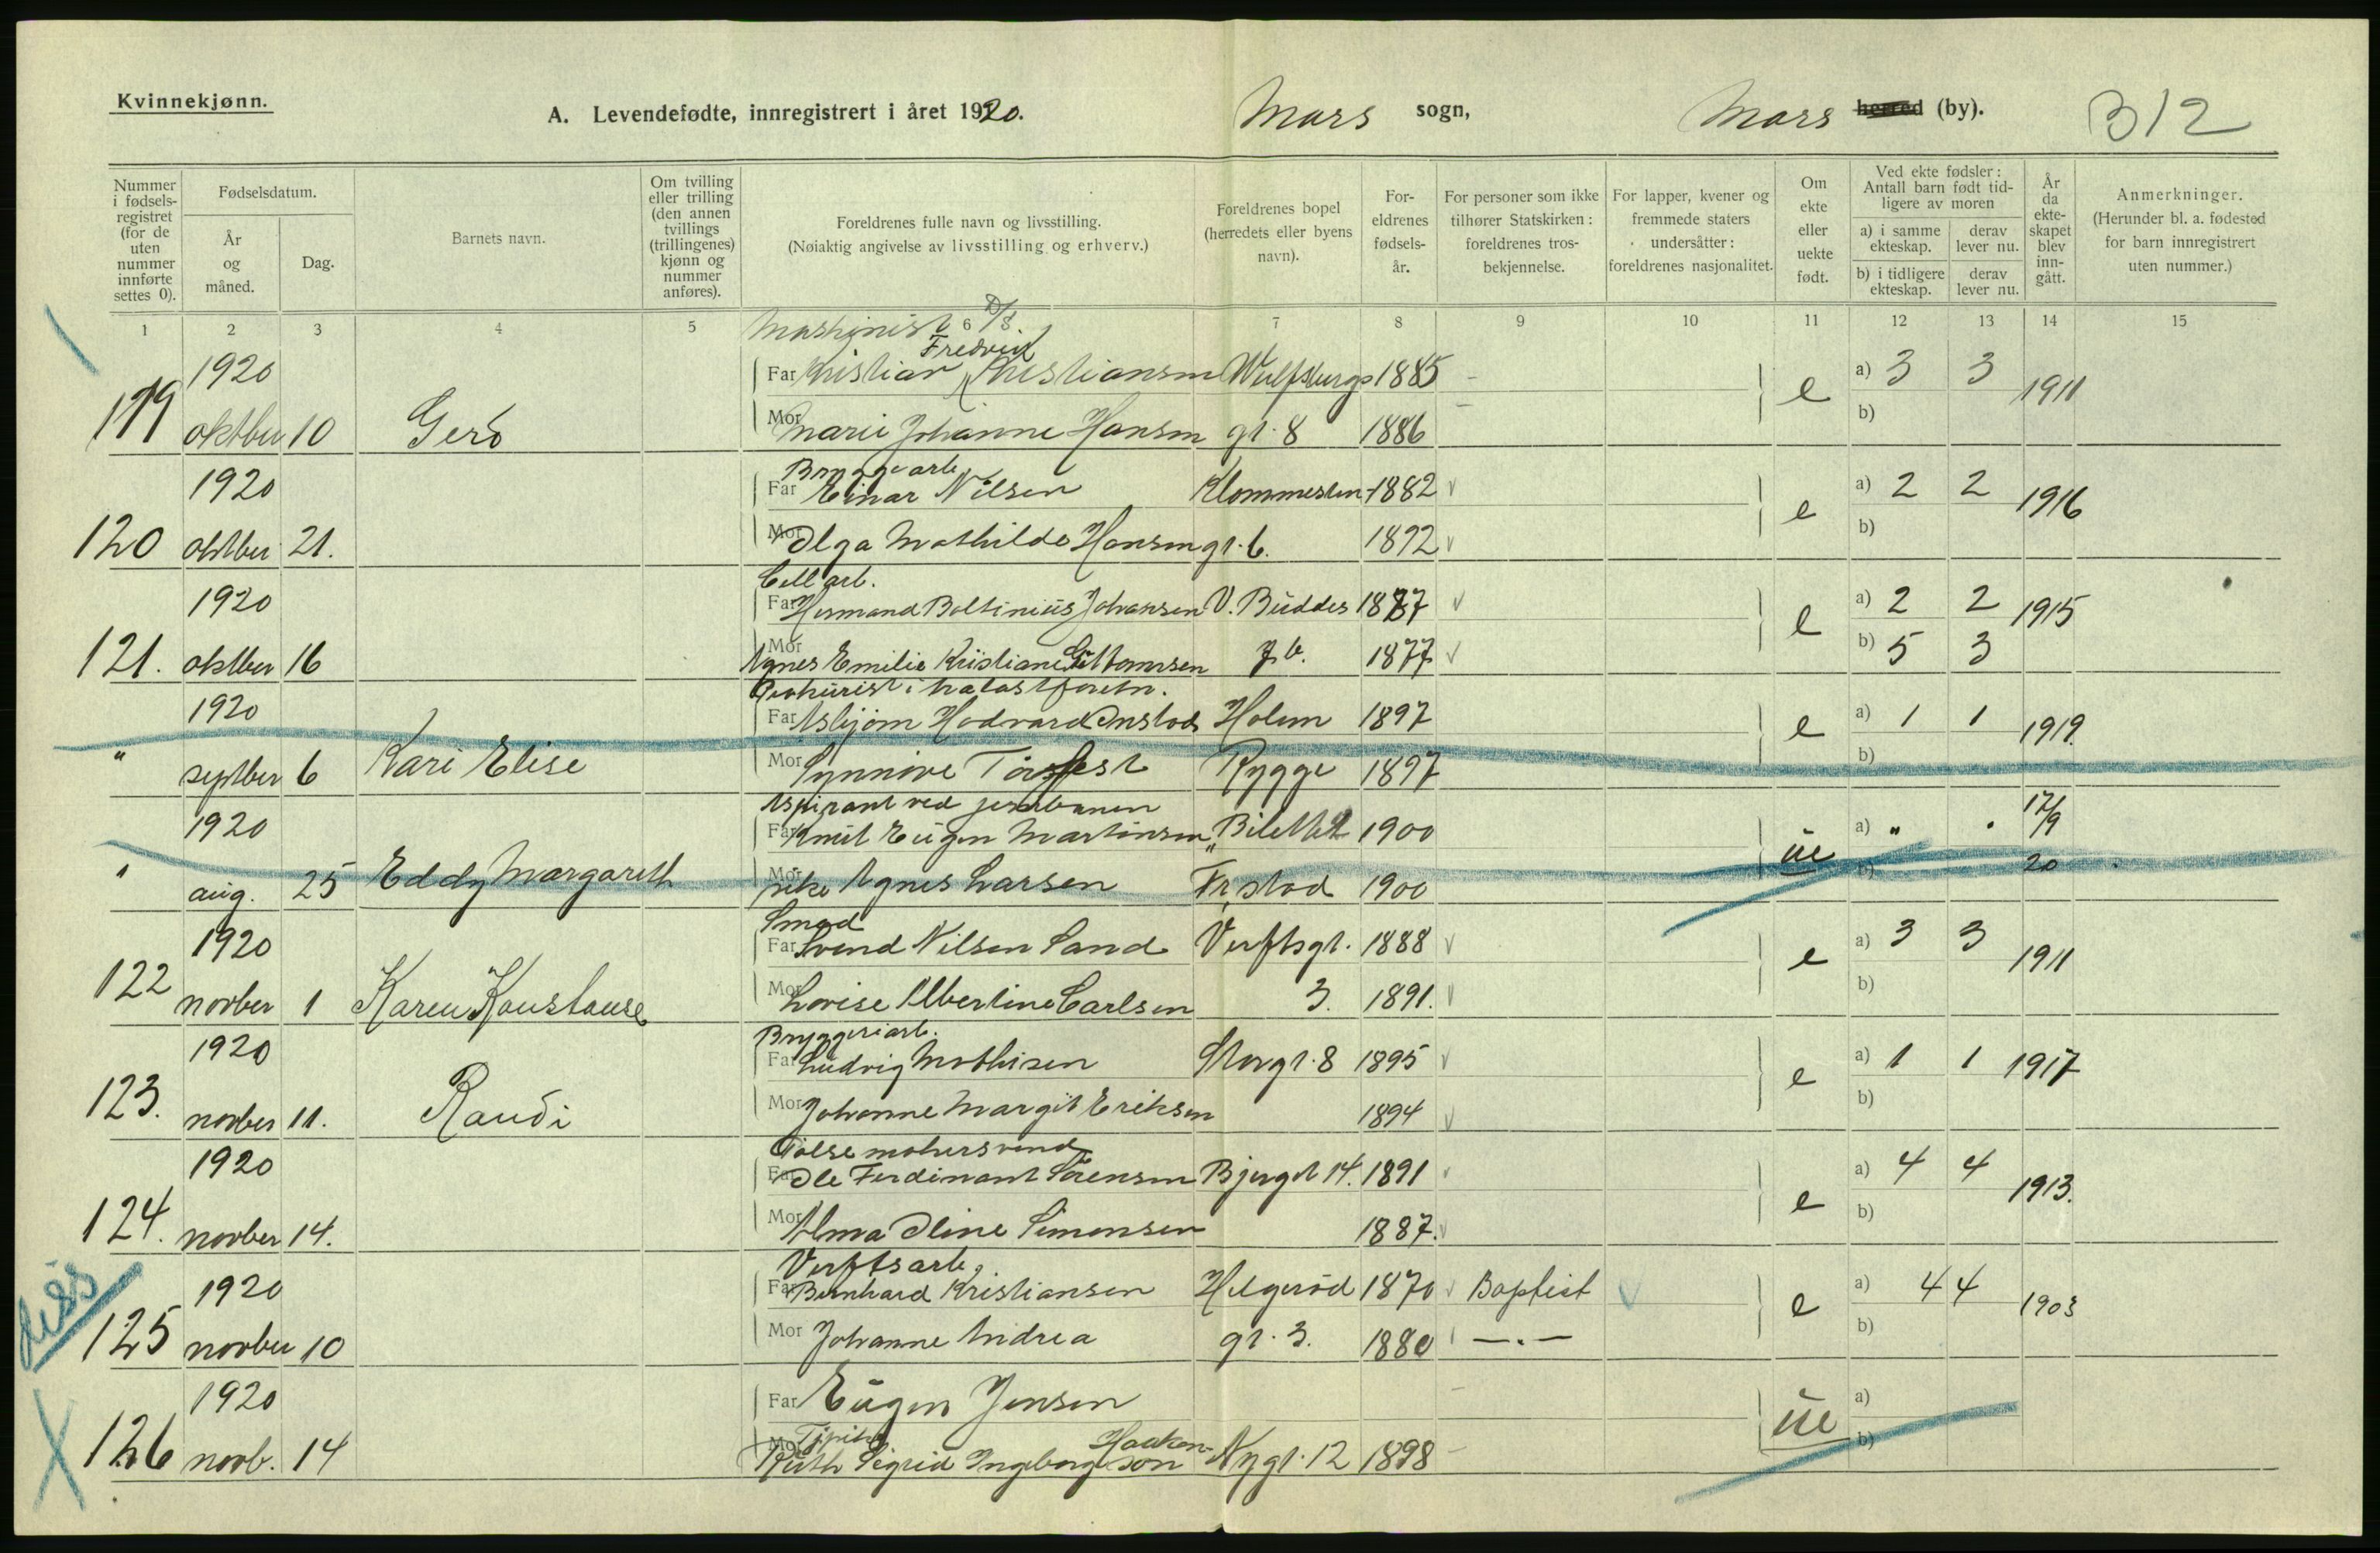 Kvinnekjønn.
A. Levendefødte, innregistrert i året 1920.
Moss sogn,
Moss herred (by).
B12
Nummer i fødsels-registret (for de uten nummer innførte settes 0).
Fødselsdatum.
År og måned.
Dag.
Barnets navn.
Om tvilling eller trilling (den annen tvillings (trillingenes) kjønn og nummer anføres).
Foreldrenes fulle navn og livsstilling.
(Nøiaktig angivelse av livsstilling og erhverv.)
Foreldrenes bopel (herredets eller byens navn).
For-eldrenes fødsels-år.
For personer som ikke tilhører Statskirken: foreldrenes tros-bekjennelse.
For lapper, kvener og fremmede staters undersåtter: foreldrenes nasjonalitet.
Om ekte eller uekte født.
Ved ekte fødsler: Antall barn født tid-ligere av moren
a) i samme ekteskap.
derav lever nu.
b) i tidligere ekteskap.
derav lever nu.
År da ekte-skapet blev inn-gått.
Anmerkninger.
(Herunder bl. a. fødested for barn innregistrert uten nummer.)
1 2 3 4 5 6 7 8 9 10 11 12 13 14 15
Maskinist D/S.
Fredrik
1920 Far Kristian Kristiansen Wulfsbergs 1885 - e a) 3 3 1911
119 oktber 10 Gerd Mor Marie Johanne Hansen gt. 8 1886 - b)
Bryggearb.
1920 Far Einar Nilsen Klommesten- 1882 e a) 2 2 1916
120 oktber 21. Mor Olga Mathilde Hansen gt. 6. 1892 b)
Cell arb.
1920 Far Hermand Boltinius Johansen V. Buddes 1887 e a) 2 2 1915
121. oktber 16 Mor Agnes Emilie Kristiane Guttormsen 1877 b) 5 3
Prokurist i
1920 Far Asbjørn Hadvard Holum 1897 e a) 1 1 1919.
" septber 6 Kari Elise Mor Synnøve Rygge 1897 b)
Aspirant ved jernbanen
1920 Far Knut Eugen Martinsen 1900 ue a) " 17/9
" aug. 25 Eddy Margareth Mor Agnes Larsen Fr.stad 1900 b) 20
Smed
1920 Far Svend Nilsen Sand Verftsgt. 1888 e a) 3 3 1911
122 novber 1 Karen Konstanse Mor Lovise Albertine Carlsen 3. 1891. b)
Bryggeriarb.
1920 Far Ludvig Mathisen Storgt. 8 1895 e a) 1 1 1917
123. novber 11. Randi Mor Johanne Margit Eriksen 1894 b)
Pølsemakersvend
1920 Far Ole Ferdinant Sørensen Bjergt 14. 1891 e a) 4 4 1913.
124. novber 14. Mor Alma Oline Simensen 1887. b)
Verftsarb.
1920 Far Bernhard Kristiansen Helgerød 1870 Baptist e a) 4 4 1903
diss
125 novber 10 Mor Johanne Andrea gt. 3. 1880 —.— b)
1920 Far Eugen Jensen - ue a)
126 novb. 14 Mor Ruth Sigrid Ingeborg Haakonson Nygt. 12 1898 - b)